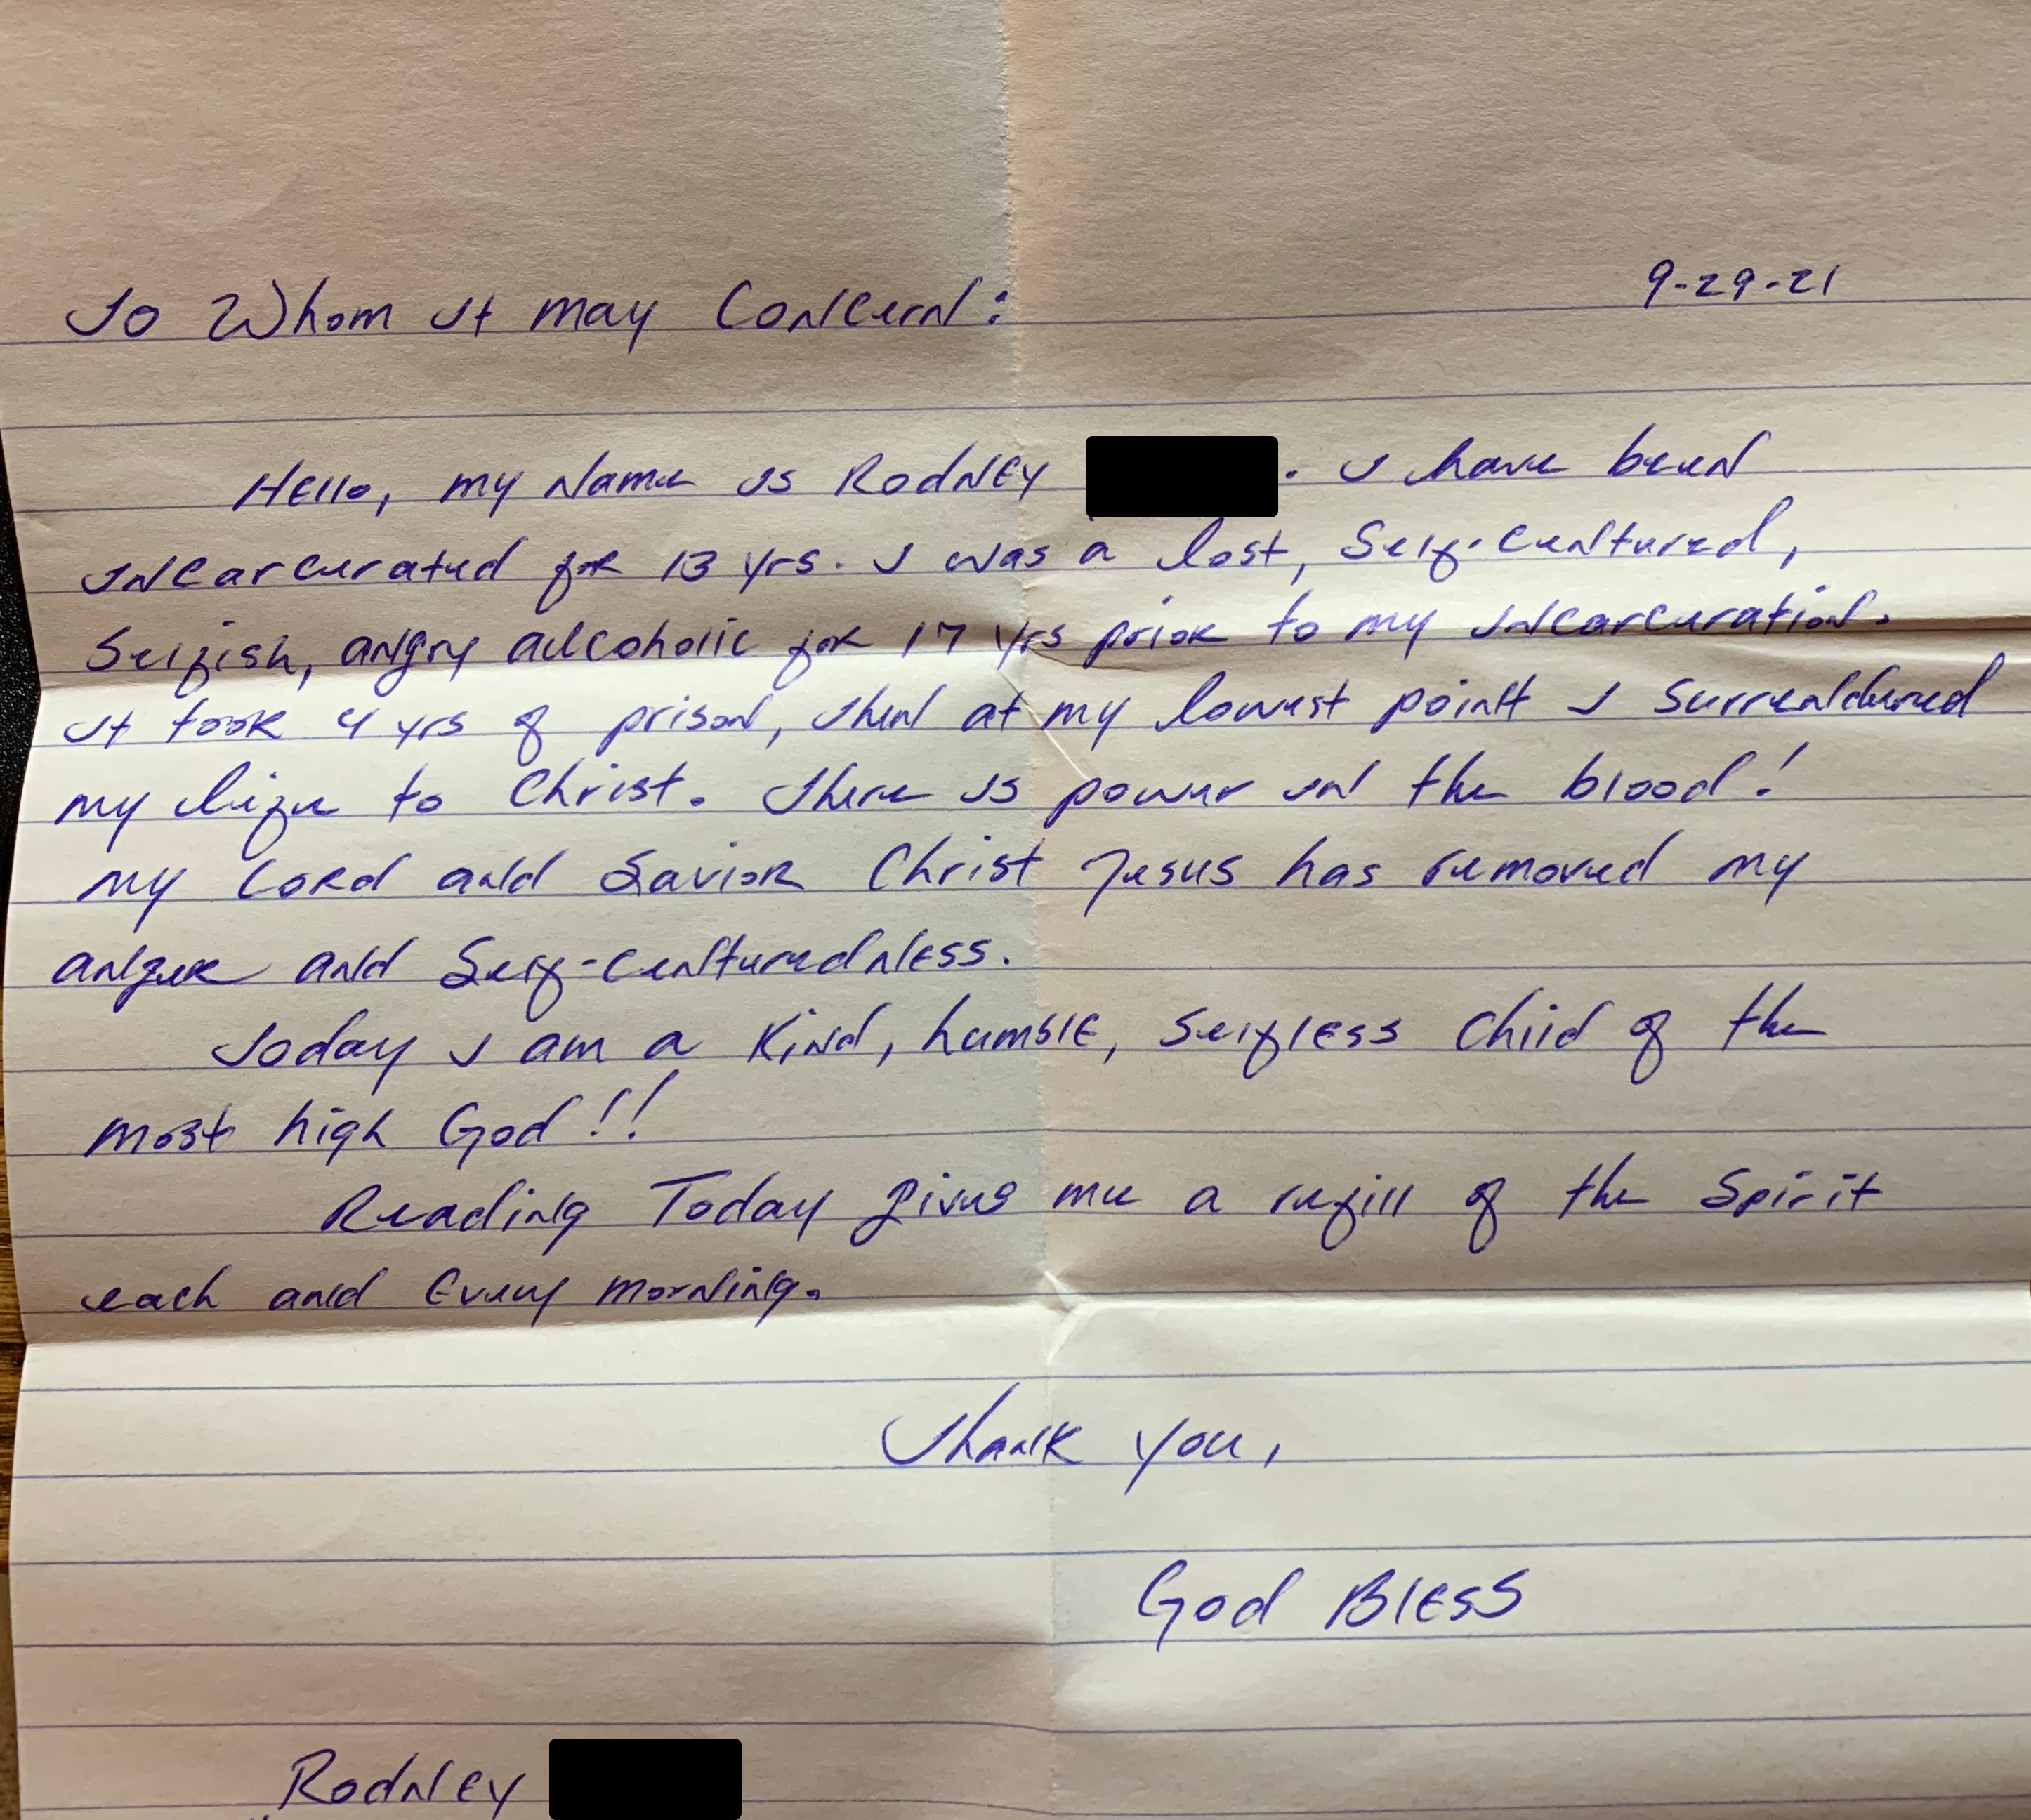 To Whom it may Concern: 9-29-21
Hello, my name is Rodney . I have been
incarcerated for 13 yrs. I was a lost, self-centered,
selfish, angry alcoholic for 17 yrs prior to my incarceration.
It took 4 yrs of prison, then at my lowest point I surrendered
my life to Christ. There is power in the blood!
my Lord and Savior Christ Jesus has removed my
anger and self-centeredness.
Today I am a kind, humble, selfless child of the
most high God!!
Reading Today gives me a refill of the Spirit
each and every morning.
Thank you,
God Bless
Rodney